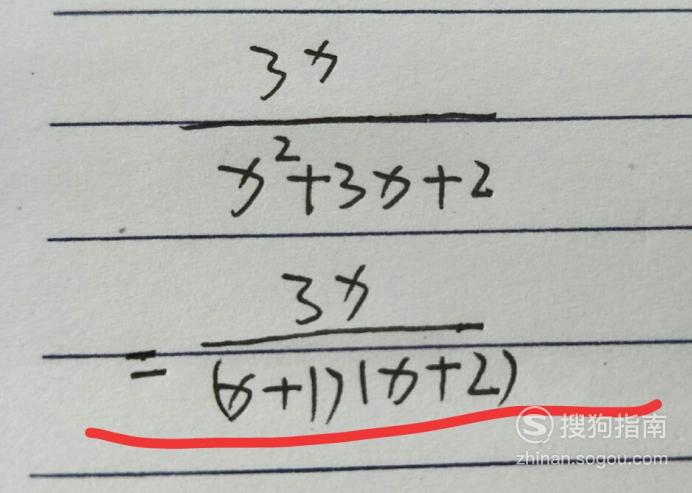 3x
x²+3x+2
3x
= (x+1)(x+2)
搜狗指南
zhinan.sogou.com